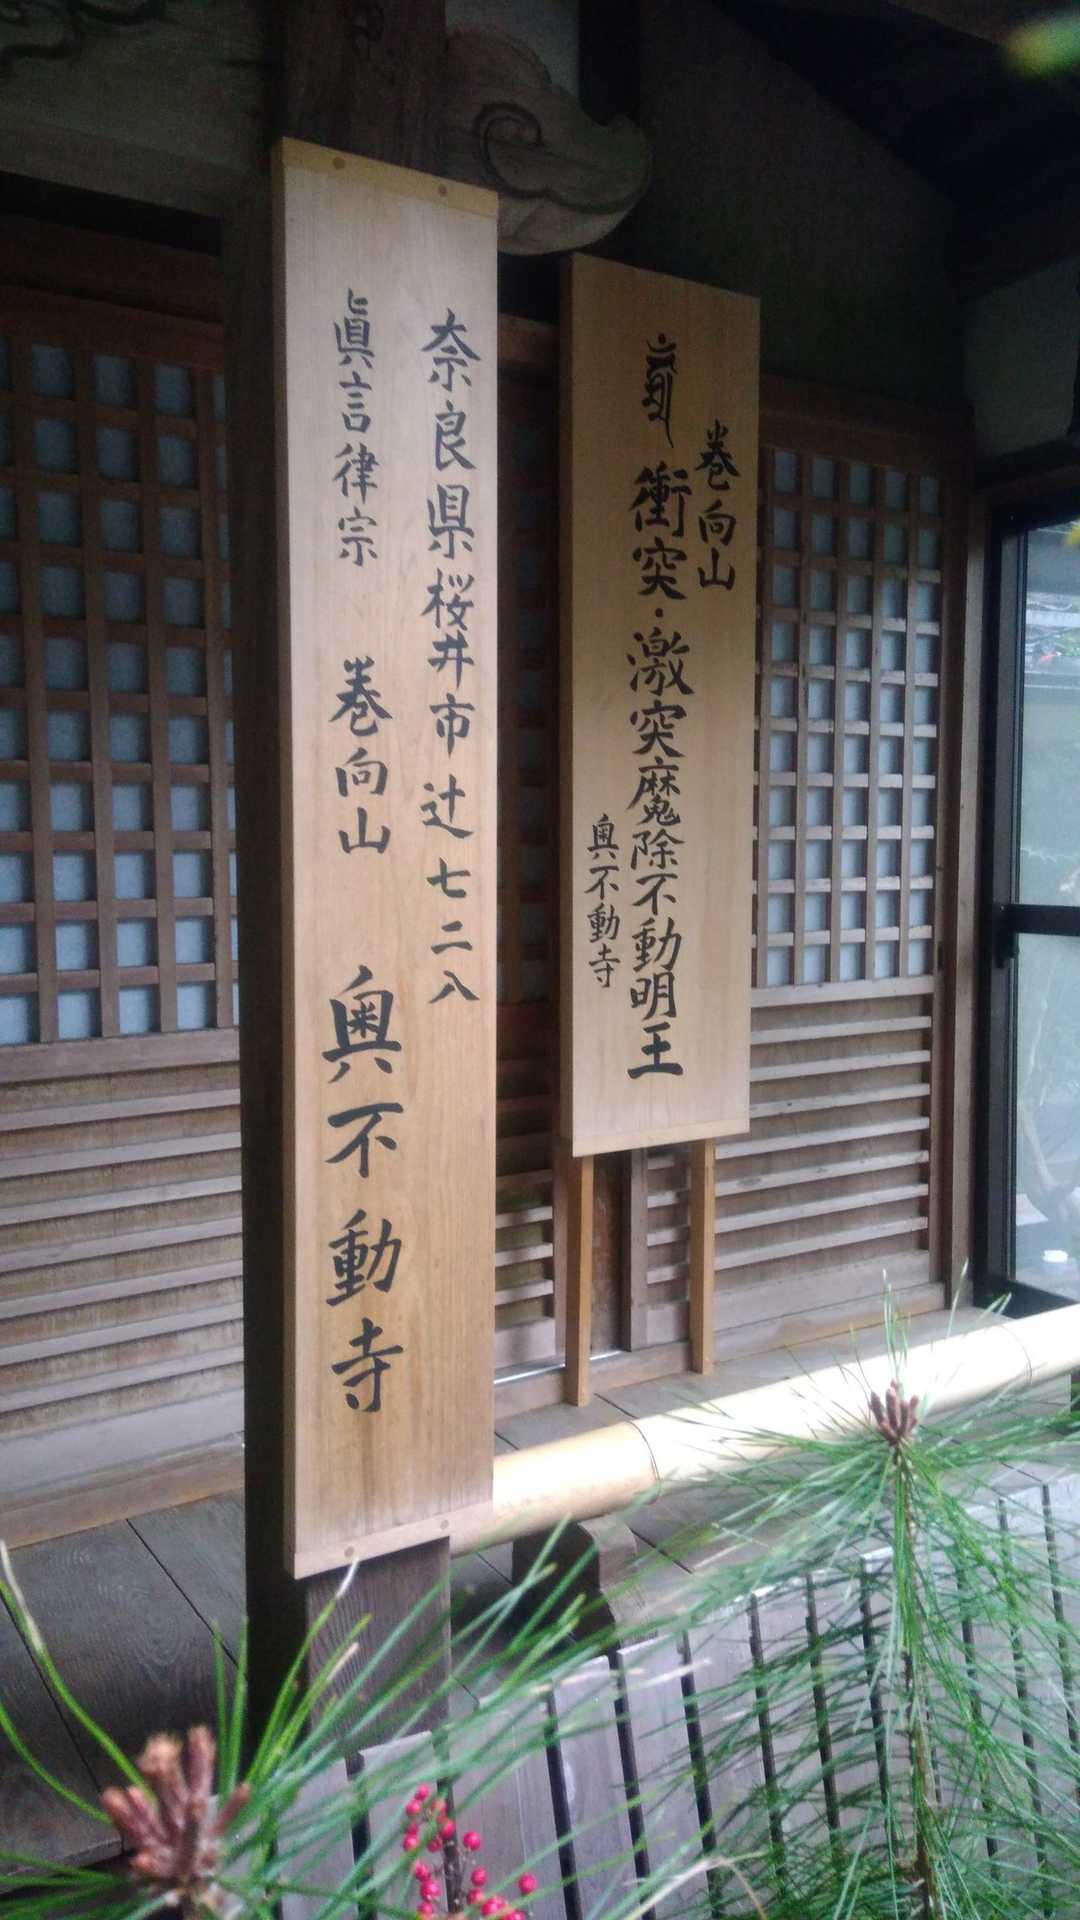 巻向山
衝突・激突魔除不動明王
奥不動寺
奈良県桜井市辻七二八
眞言律宗 巻向山 奥不動寺